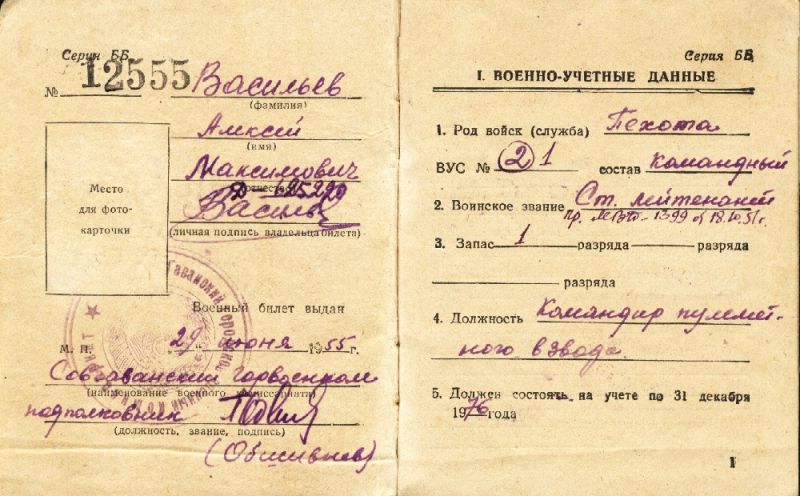 Серия ББ
№ 12555 Васильев
(фамилия)
Алексей
(имя)
Максимович
(отчество)
Место
для фото-
карточки
(личная подпись владельца билета)
Военный билет выдан
М. П. „29 июня 1955 г.
Совгаванский горвоенком
(наименование военного комиссариата)
подполковник
(должность, звание, подпись)
Серия ББ
I. ВОЕННО-УЧЕТНЫЕ ДАННЫЕ
1. Род войск (служба) Пехота
ВУС № 21 состав командный
2. Воинское звание Ст. лейтенант
3. Запас 1 разряда разряда
разряда
4. Должность Командир пулемет-
ного взвода
5. Должен состоять на учете по 31 декабря
1976 года
1